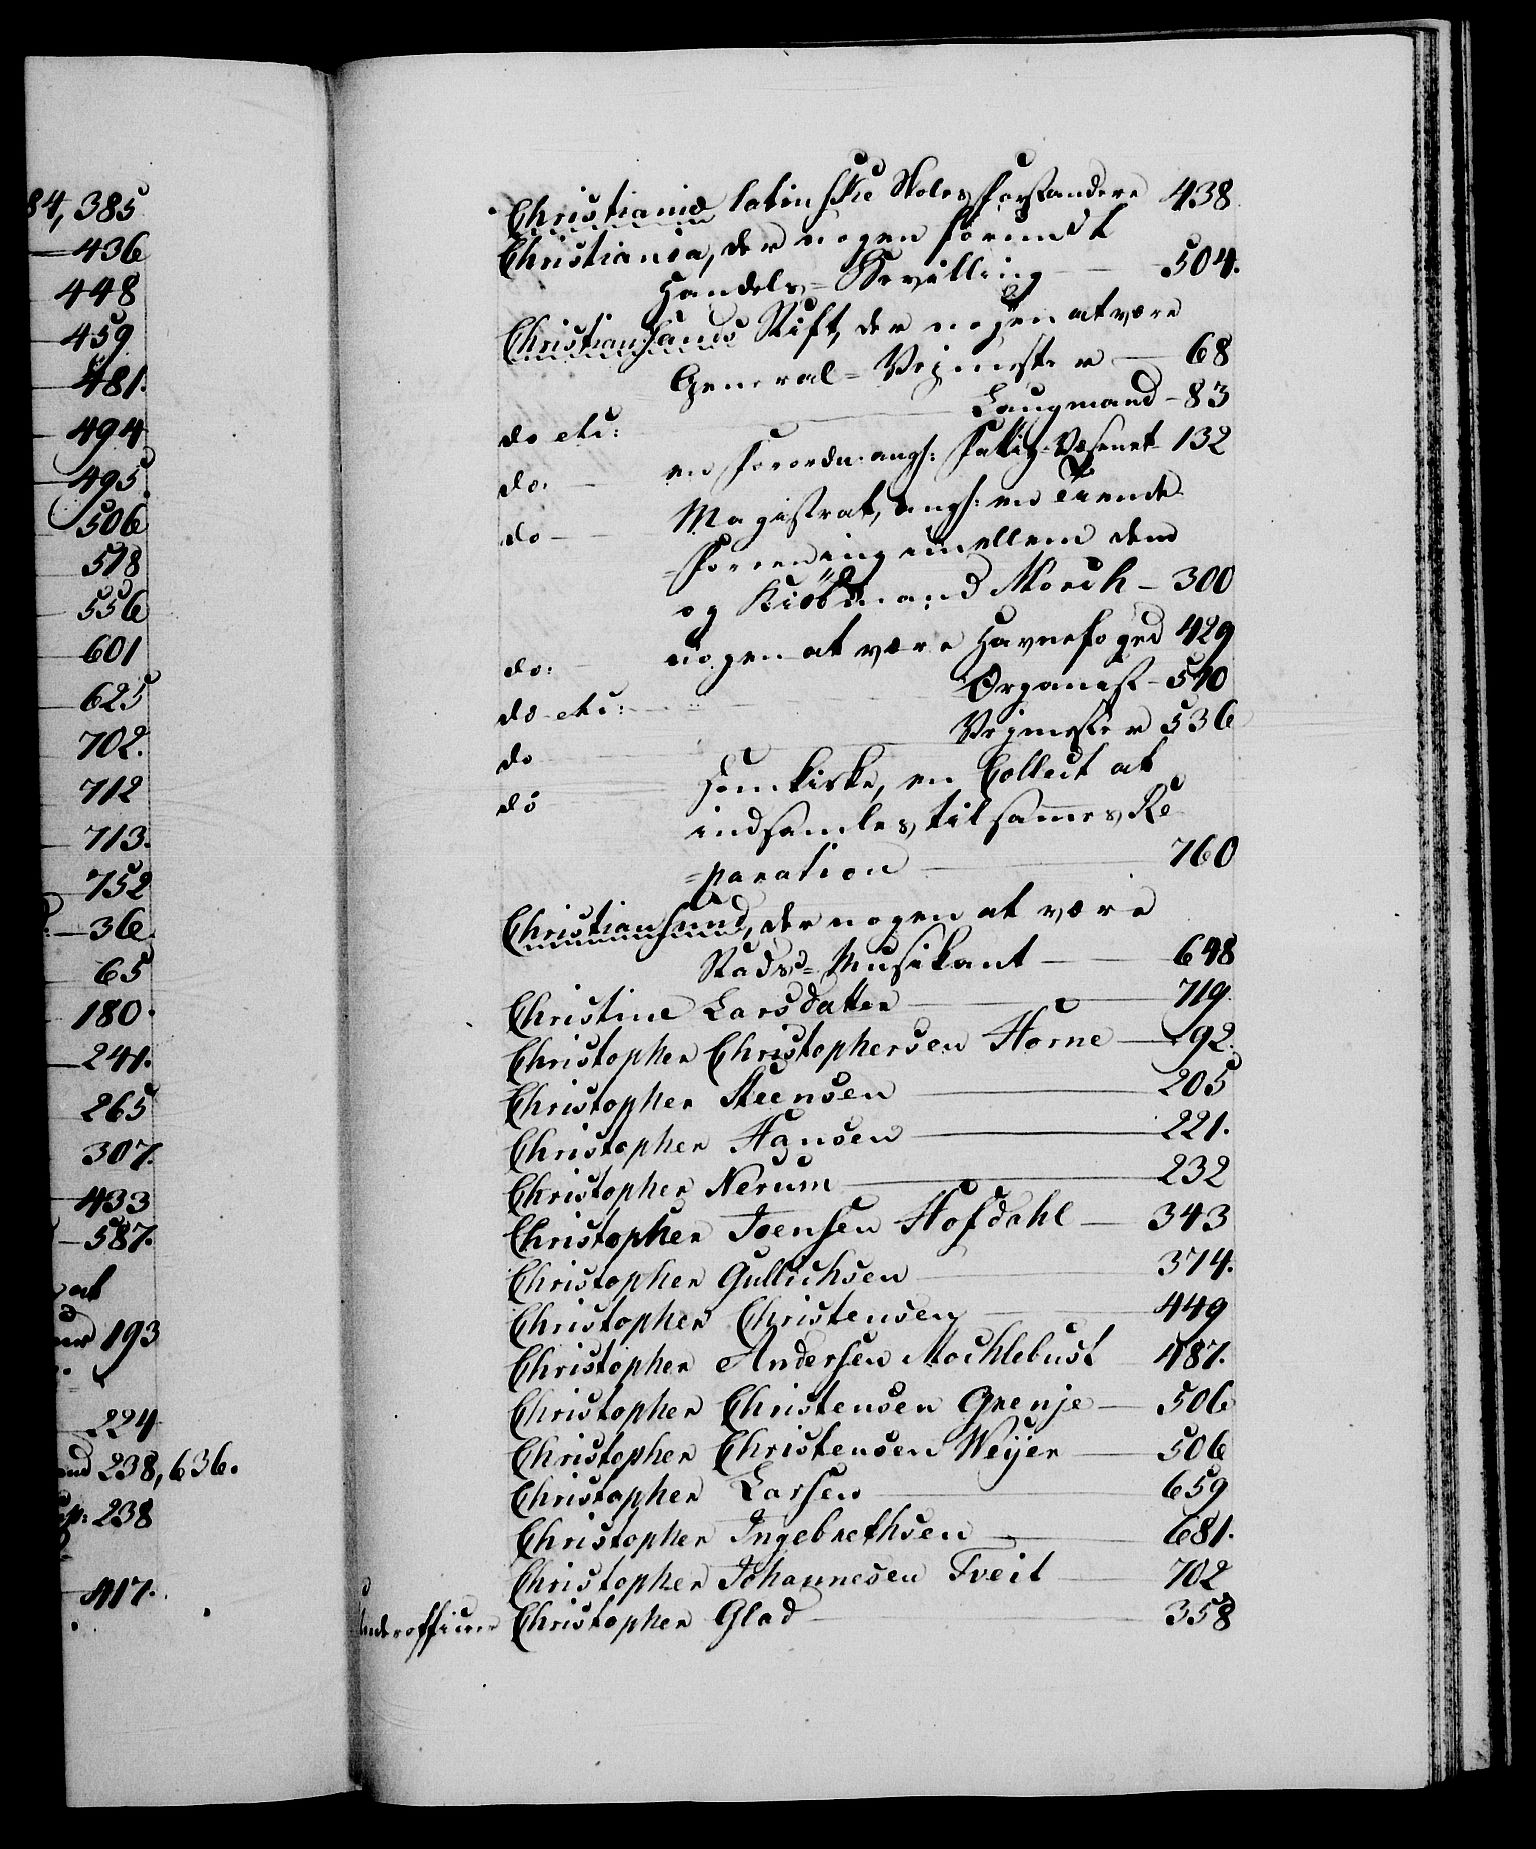 84, 385
436
448
459
481.
494
495.
506
518
556
601
625
702.
712
713.
752
36.
65
180.
241.
265
307.
433
587.
at
193
224
238, 636.
238
417.
Christianiæ latinske Skoles Forstandere 438
Christiania, der nogen forundt
Handels-Bevilling 504.
Christiansands Stift, der nogen at være
General-Vejmester 68
do etc: Laugmand 83
do: en Forordn: angf: Fattig-Væsenet 132
do Magistrat, angf: en Tiende-
-Forening imellem dem
og Kiöbmand Morch 300
do: nogen at være Havnefoged 429
do etc: Organist 510
do Vejmester 536
do Domkirke, en Collect at
indsamles til sammes Re
=paration 760
Christiansund, der nogen at være
Stads-Musikant 648
Christine Larsdatter 719
Christopher Christophersen Horne 92.
Christopher Steensen 205
Christopher Hansen 221.
Christopher Nerum 232
Christopher Joensen Hofdahl 343
Christopher Gullichsen 374.
Christopher Christensen 449
Christopher Andersen Mochlebust 487.
Christopher Christensen Grenje 506
Christopher Christensen Weyer 506
Christopher Larsen 659
Christopher Ingebrethsen 681.
Christopher Johannesen Tveit 702
Underofficeer Christopher Glad 358